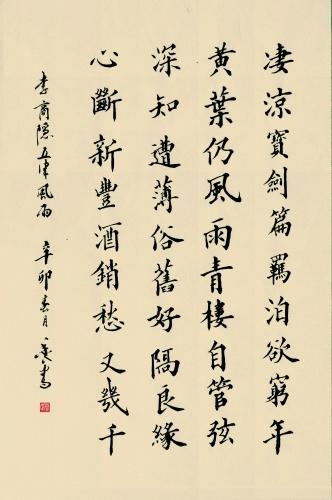 凄涼寶劍篇羈泊欲窮年
黃葉仍風雨青樓自管弦
深知遭薄俗舊好隔良緣
心斷新豐酒銷愁又幾千
李商隱五律風雨 辛卯春月